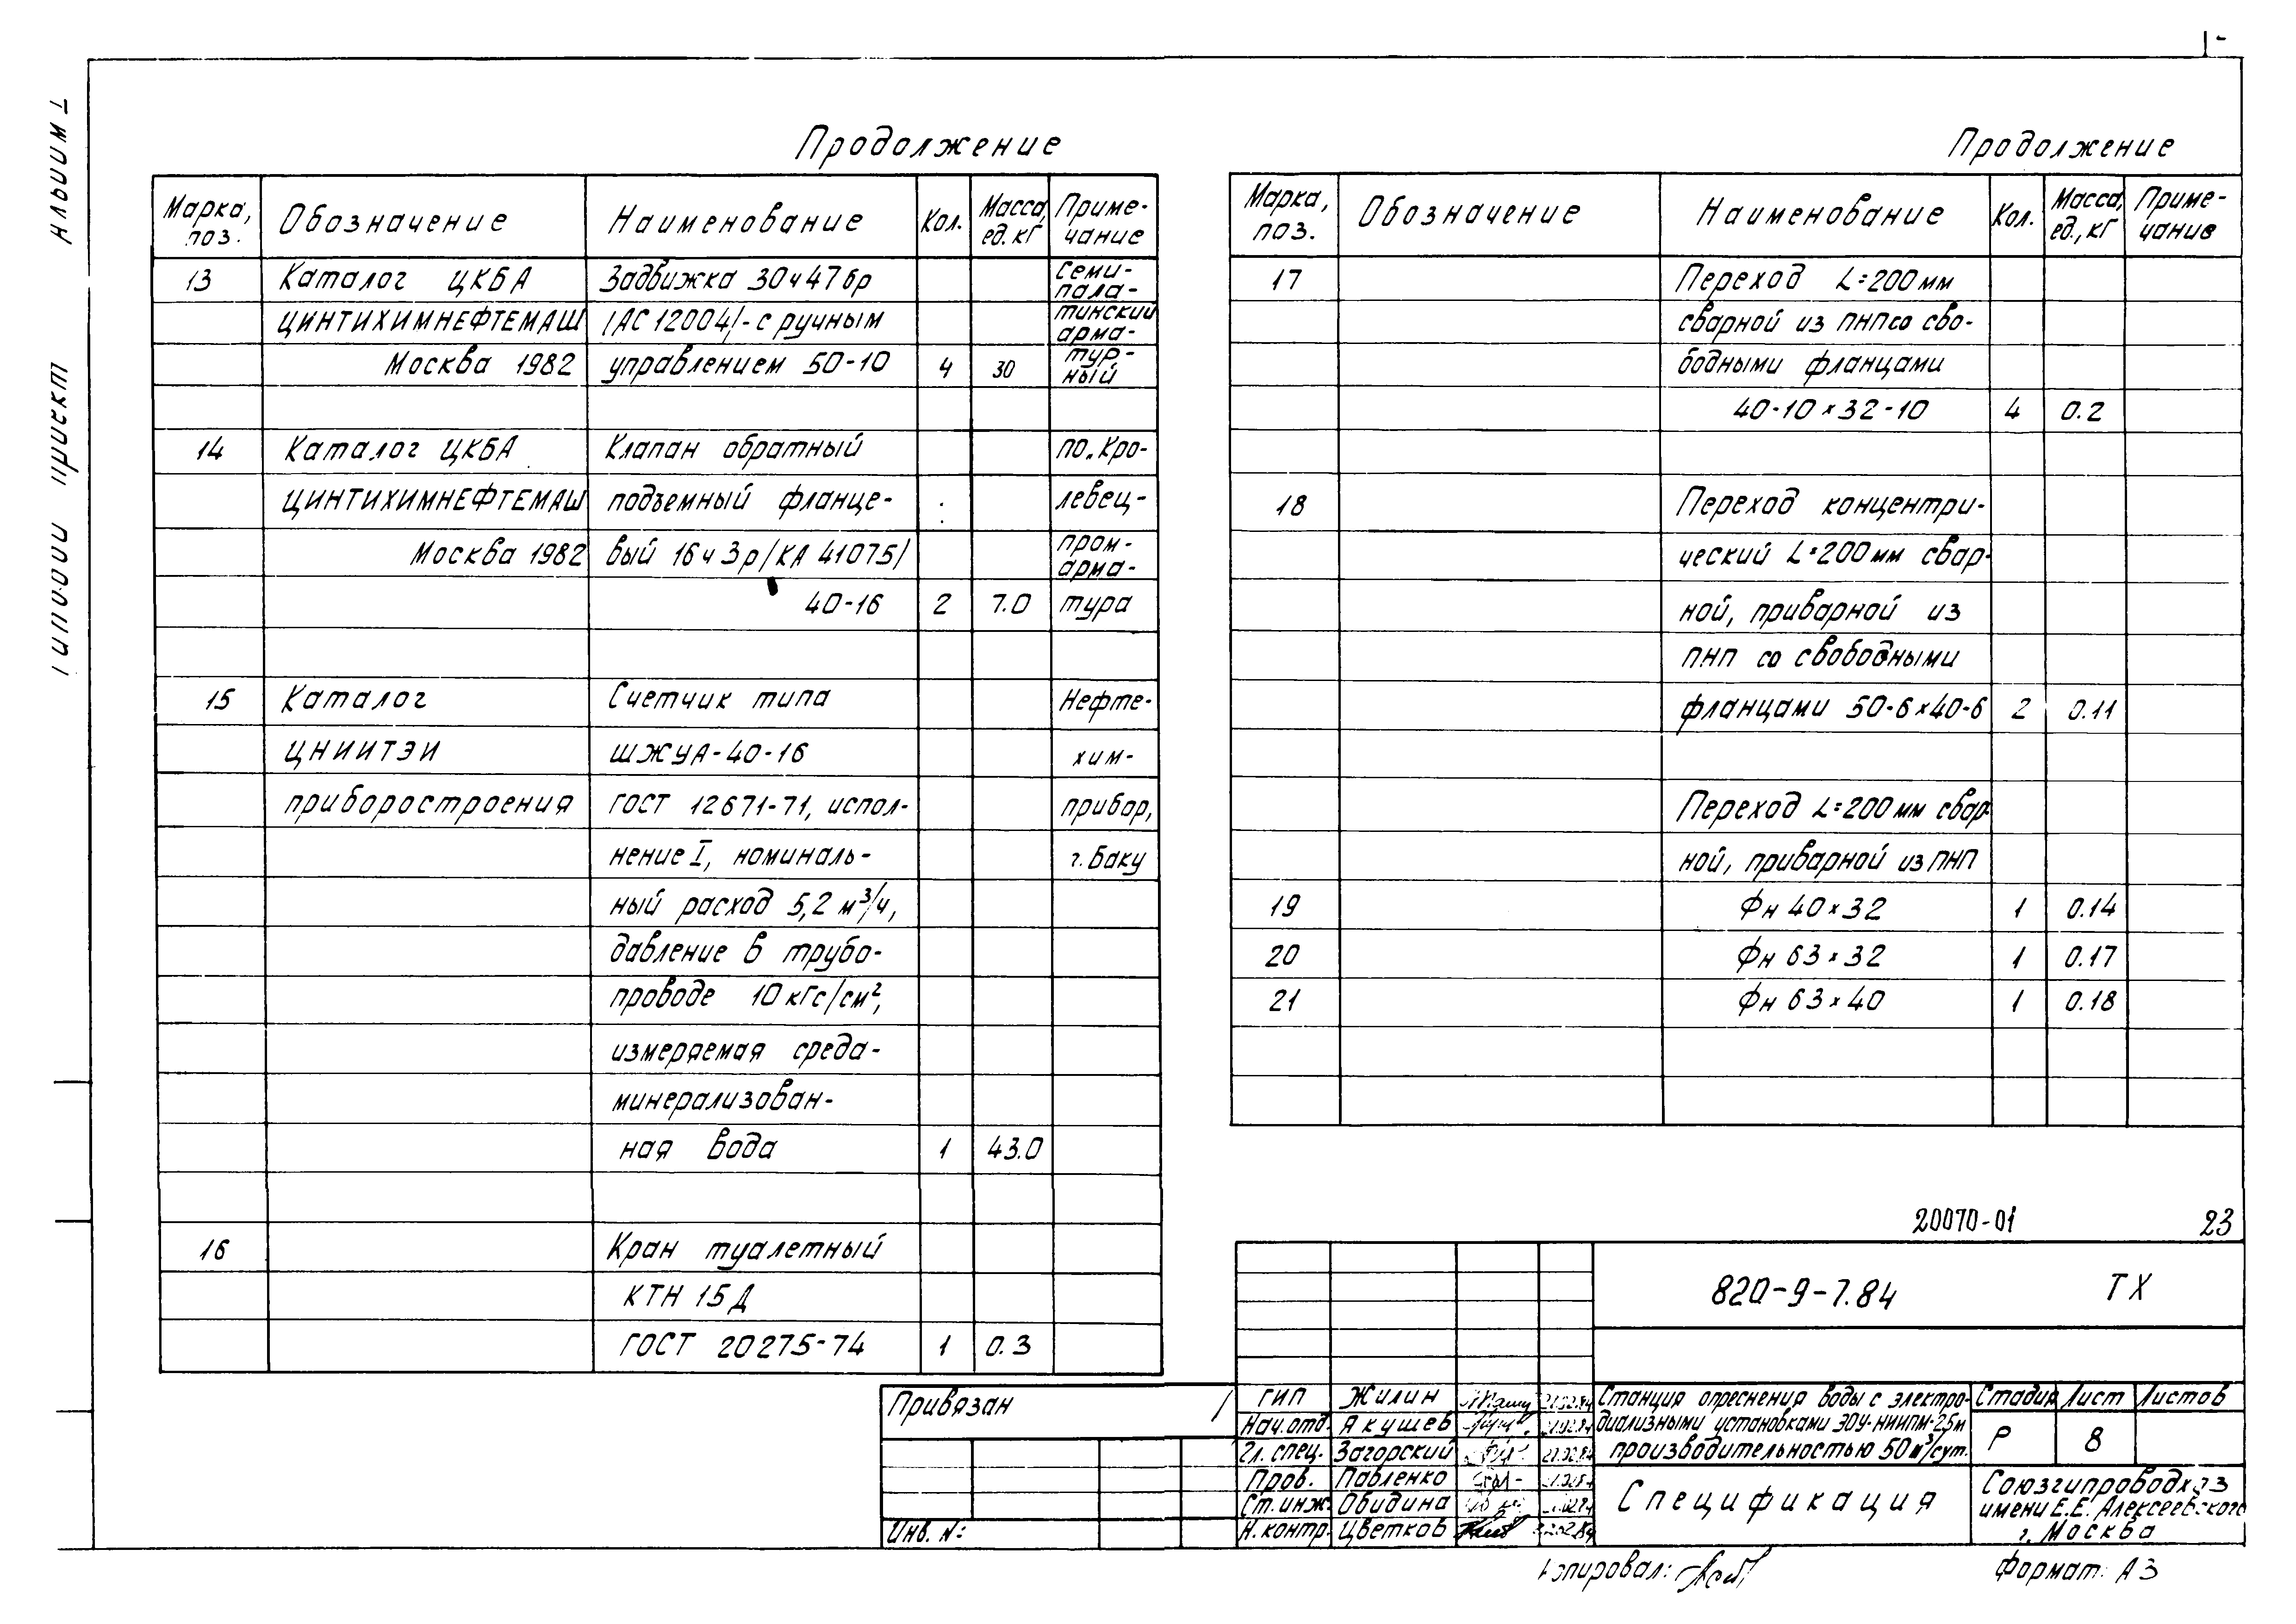 Альбом I
Типовой проект
Продолжение
Марка, поз. Обозначение Наименование Кол. Масса, ед. кг Приме-чание
13 Каталог ЦКБА Задвижка 30ч47бр Семи-пала-
ЦИНТИХИМНЕФТЕМАШ /АС 12004/- с ручным тинский арма-
Москва 1982 управлением 50-10 4 30 тур-ный
14 Каталог ЦКБА Клапан обратный по„Кро-
ЦИНТИХИМНЕФТЕМАШ подъемный фланце- левец-
Москва 1982 вый 16ч3р/КА 41075/ пром-арма-
40-16 2 7.0 тура
15 Каталог Счетчик типа Нефте-
ЦНИИТЭИ ШЖУА-40-16 хим-
приборостроения ГОСТ 12671-71, испол- прибор,
нение I, номиналь- г. Баку
ный расход 5,2 м³/ч,
давление в трубо-
проводе 10 кгс/см²,
измеряемая среда-
минерализован-
ная вода 1 43.0
16 Кран туалетный
КТН 15Д
ГОСТ 20275-74 1 0.3
Продолжение
Марка, поз. Обозначение Наименование Кол. Масса, ед., кг Приме-чание
17 Переход L=200мм
сварной из ПНП со сво-
бодными фланцами
40-10×32-10 4 0.2
18 Переход концентри-
ческий L=200мм свар-
ной, приварной из
ПНП со свободными
фланцами 50-6×40-6 2 0.11
Переход L=200мм свар-
ной, приварной из ПНП
19 Фн 40×32 1 0.14
20 Фн 63×32 1 0.17
21 Фн 63×40 1 0.18
20070-01 23
820-9-7.84 ТХ
Привязан
Инв. №:
ГИП Жилин
Нач.отд. Якушев
Гл. спец. Загорский
Пров. Павленко
Ст. инж. Обидина
Н. контр. Цветков
Станция опреснения воды с электро-
диализными установками ЭОУ-НИИПМ-25м
производительностью 50м³/сут.
Стадия Лист Листов
Р 8
Спецификация
Союзгипроводхоз
имени Е.Е. Алексеевского
г. Москва
Копировал:
Формат: А3